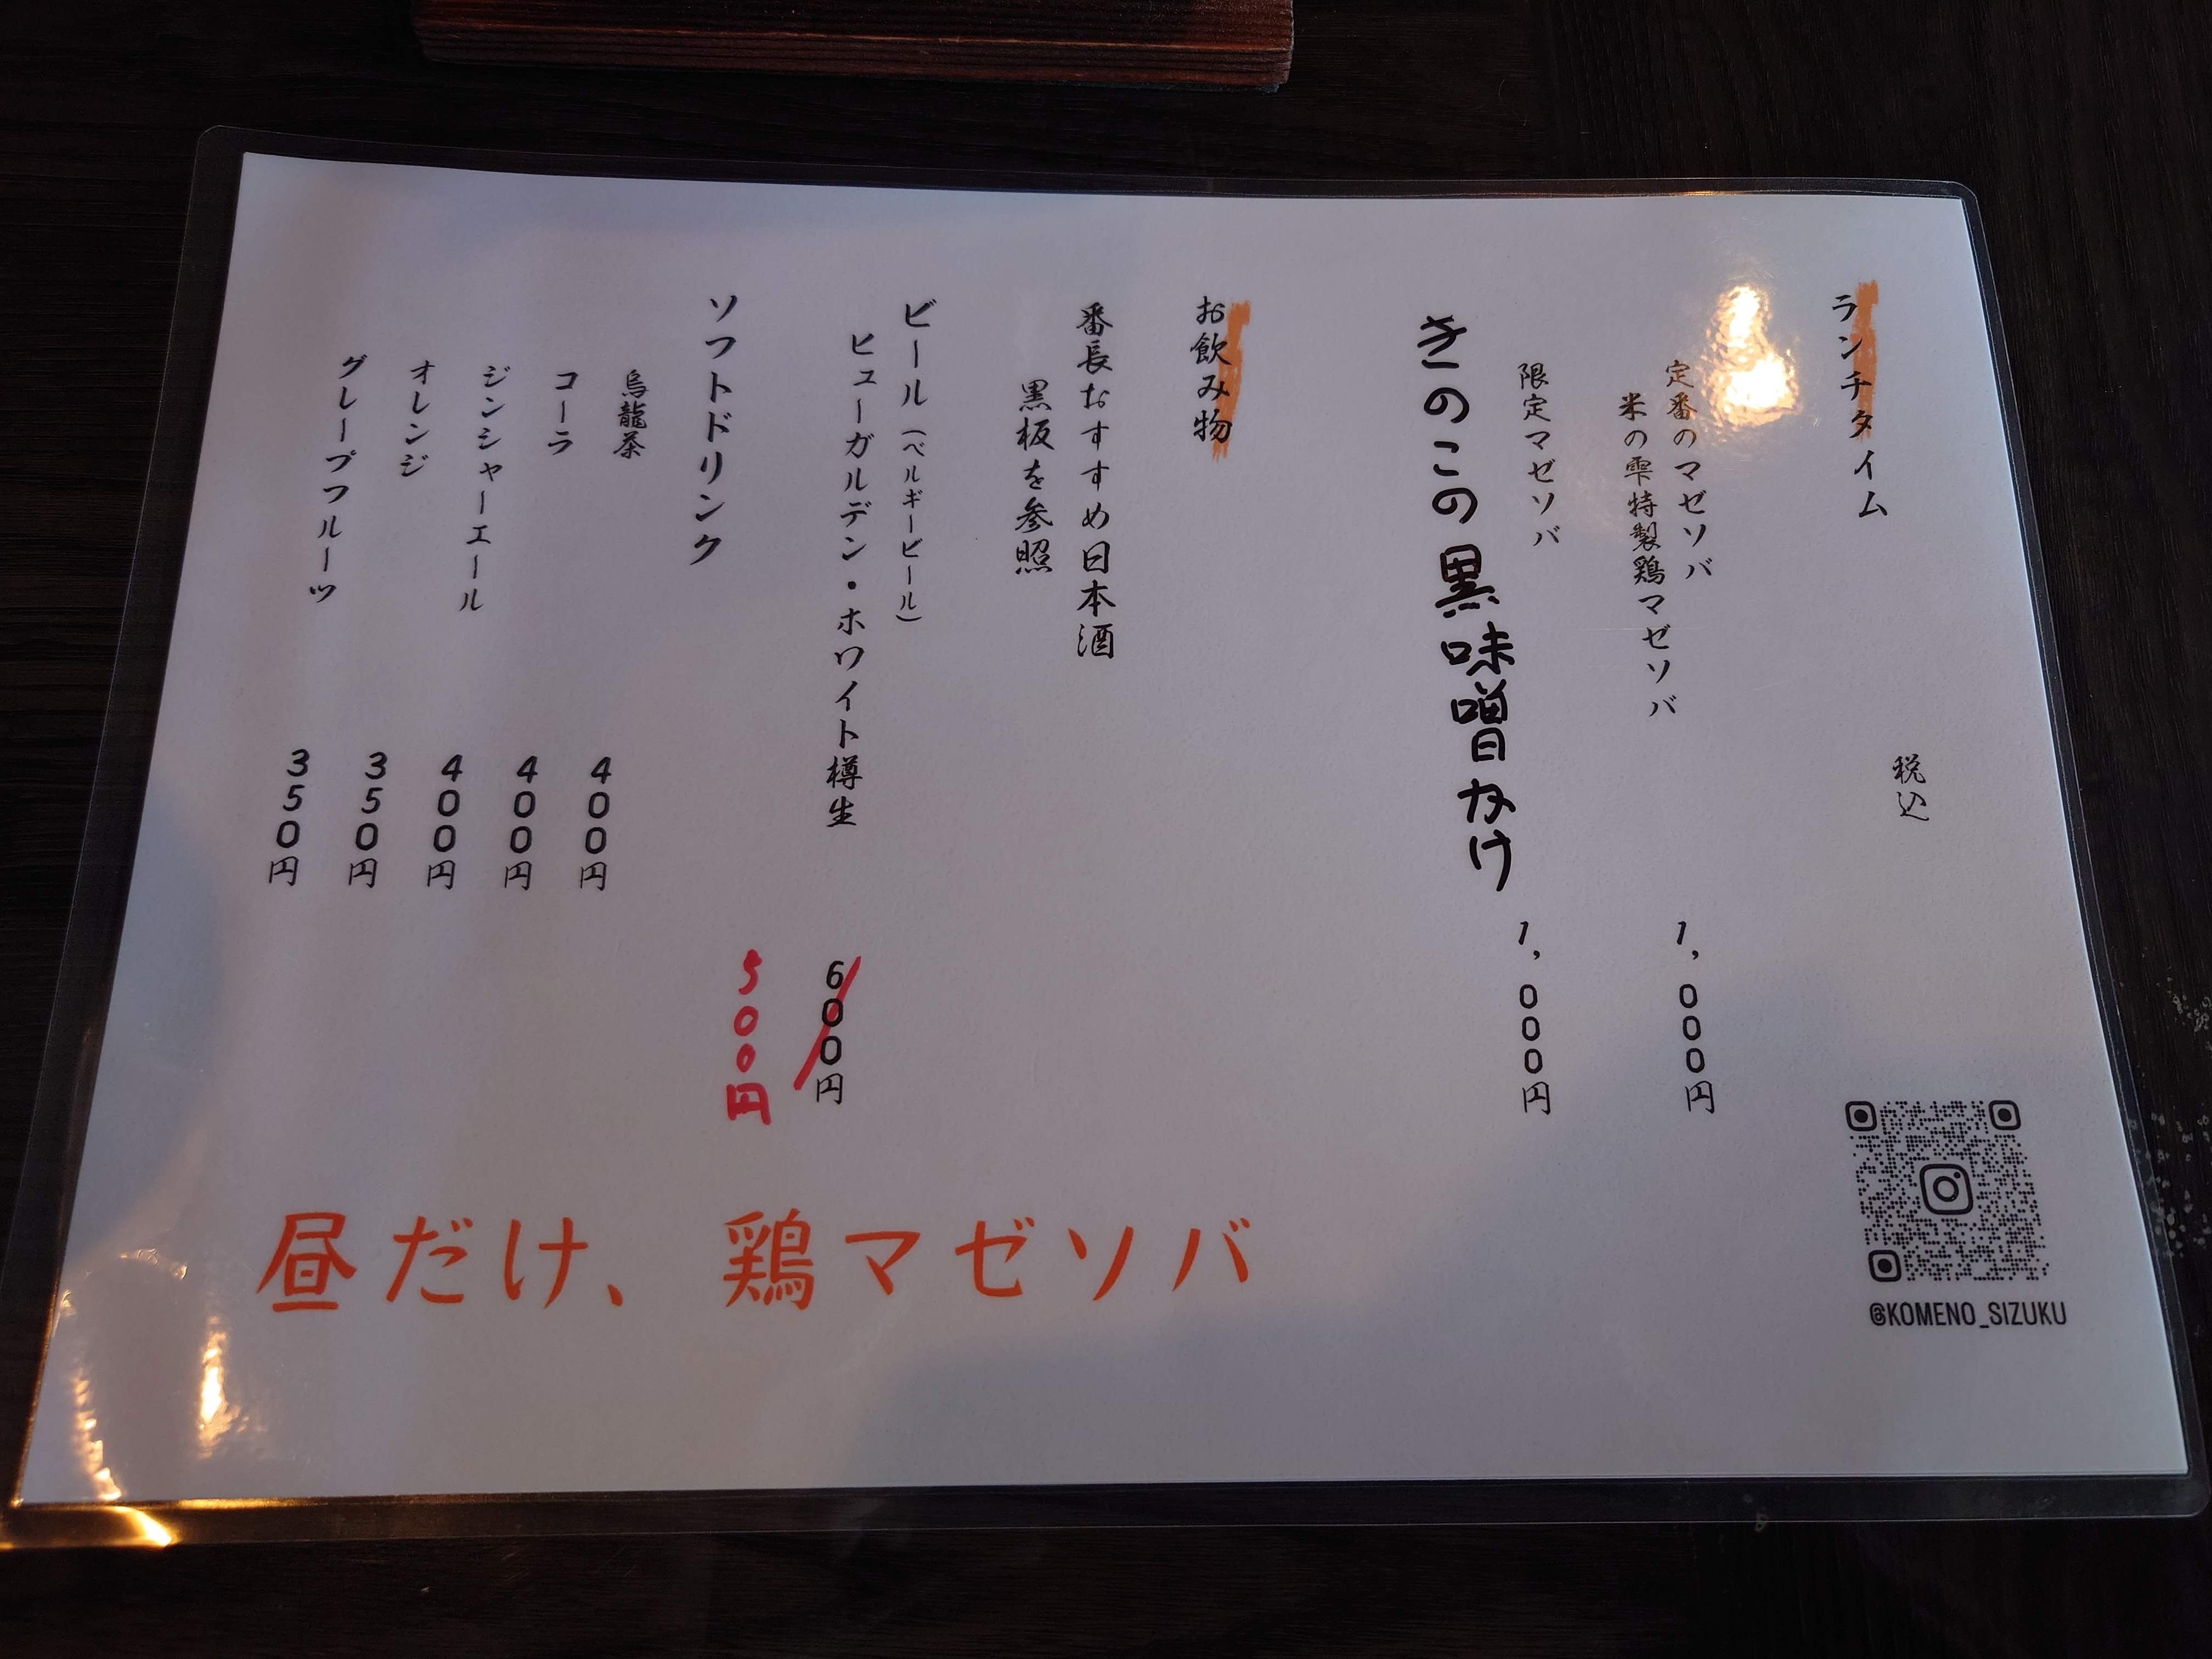 ランチタイム
税込
定番のマゼソバ
米の雫特製鶏マゼソバ
1,000円
限定マゼソバ
1,000円
きのこの黒味噌かけ
お飲み物
番長おすすめ日本酒
黒板を参照
ビール(ベルギービール)
ヒューガルデン・ホワイト樽生
600円
500円
ソフトドリンク
烏龍茶
400円
コーラ
400円
ジンジャーエール
400円
オレンジ
350円
グレープフルーツ
350円
昼だけ、鶏マゼソバ
@KOMENO_SIZUKU